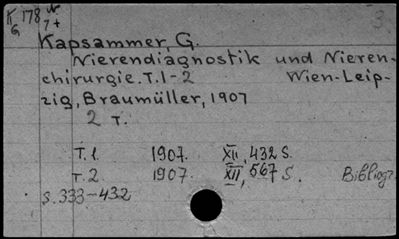 K 178 N
G 7+
3.
Kapsammer, G.
Nierendiagnostik und Nieren-
chirurgie. T.1-2 Wien-Leip-
zig, Braumüller, 1907
2 T.
T.1. 1907. XII, 432 S.
T.2 1907. XII, 567 S. Bibliogr.
S. 333-432